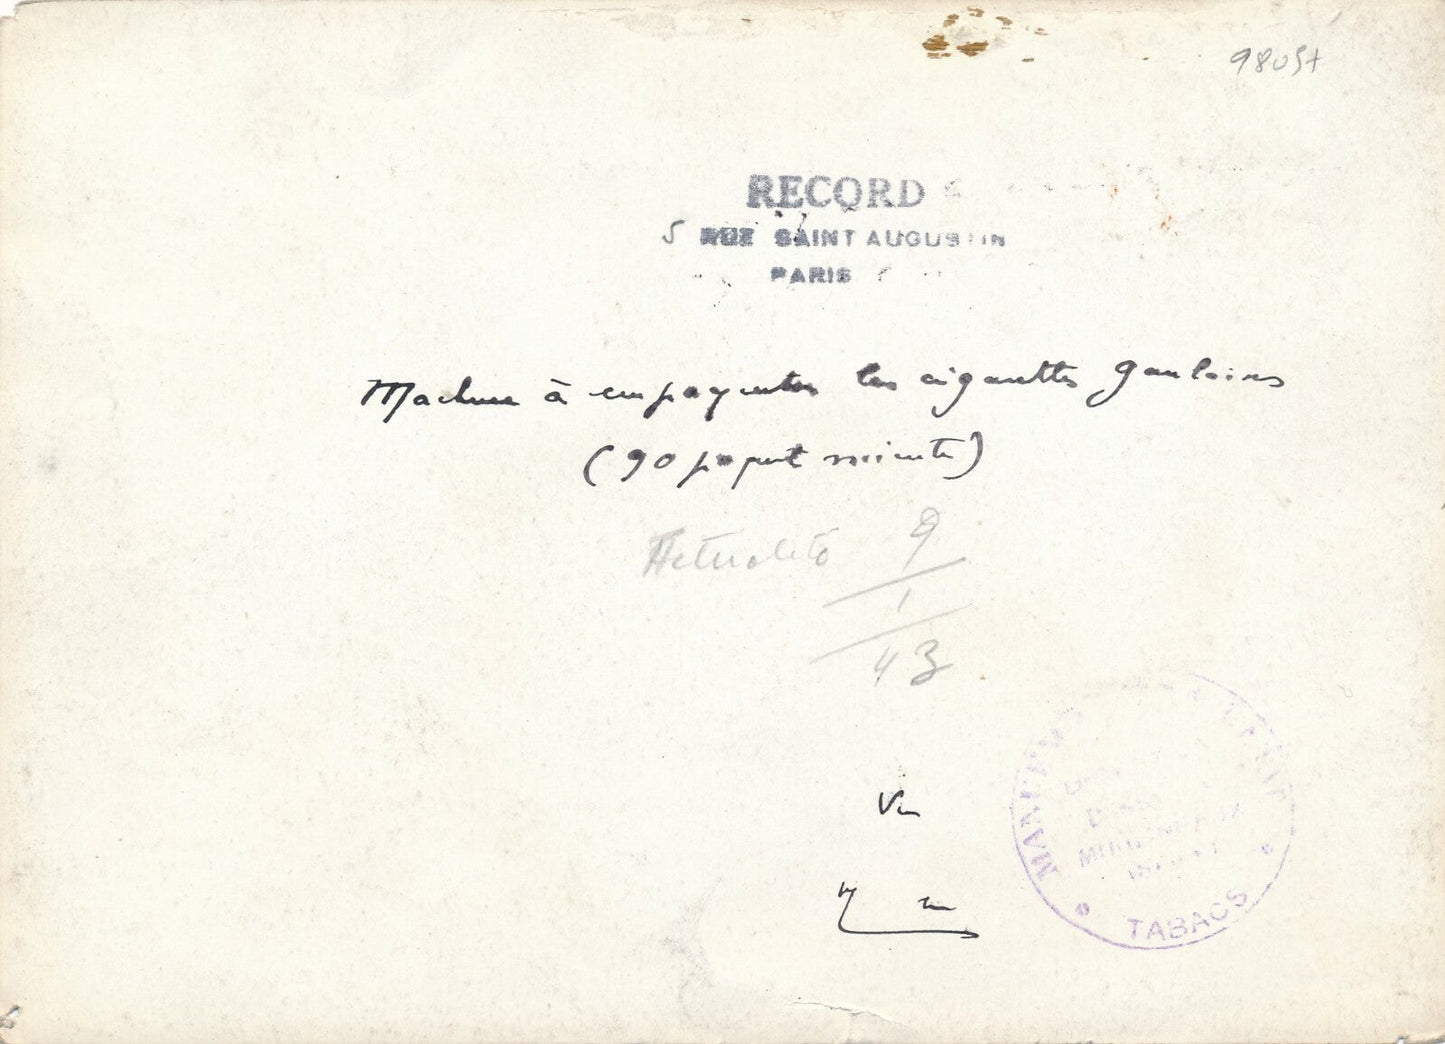 RECORD
5 RUE SAINT AUGUSTIN
PARIS
Machine à empaqueter les cigarettes gauloises
(90 paquet minute)
Actualité 9
1
43
Vu
TABACS